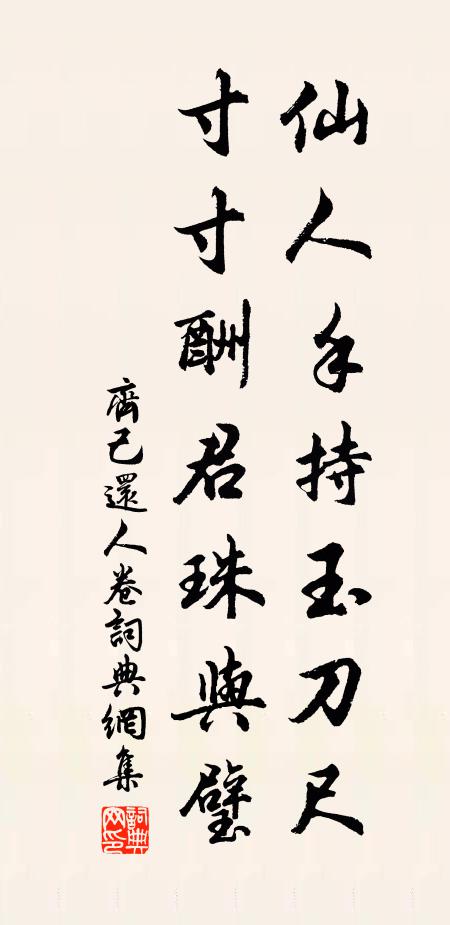 仙人手持玉刀尺
寸寸酬君珠與璧
齊己還人卷詞典網集
詞典网印